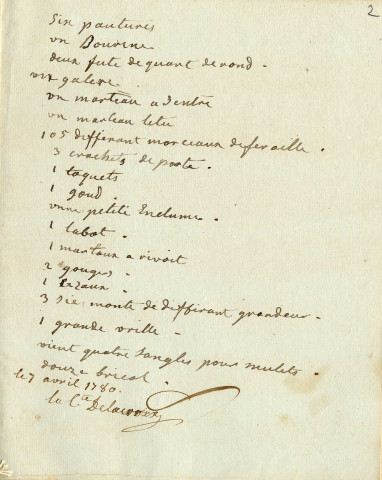 2
Six pantures
un Bourine
deux fute de quart de rond.
un galere
un marteau a dentre
un marteau tetu
105 differant morceaux de feraille.
3 crochets de porte.
1 taquets
1 gond.
unne petite Enclume.
1 tabot.
1 martaux a rivoit
2 gouges.
1
3 sie monté de differant grandeur.
1 grande vrille.
vient quatre sangles pour mulets.
douze bricol.
le 7 avril 1780.
le C.te Delacroix